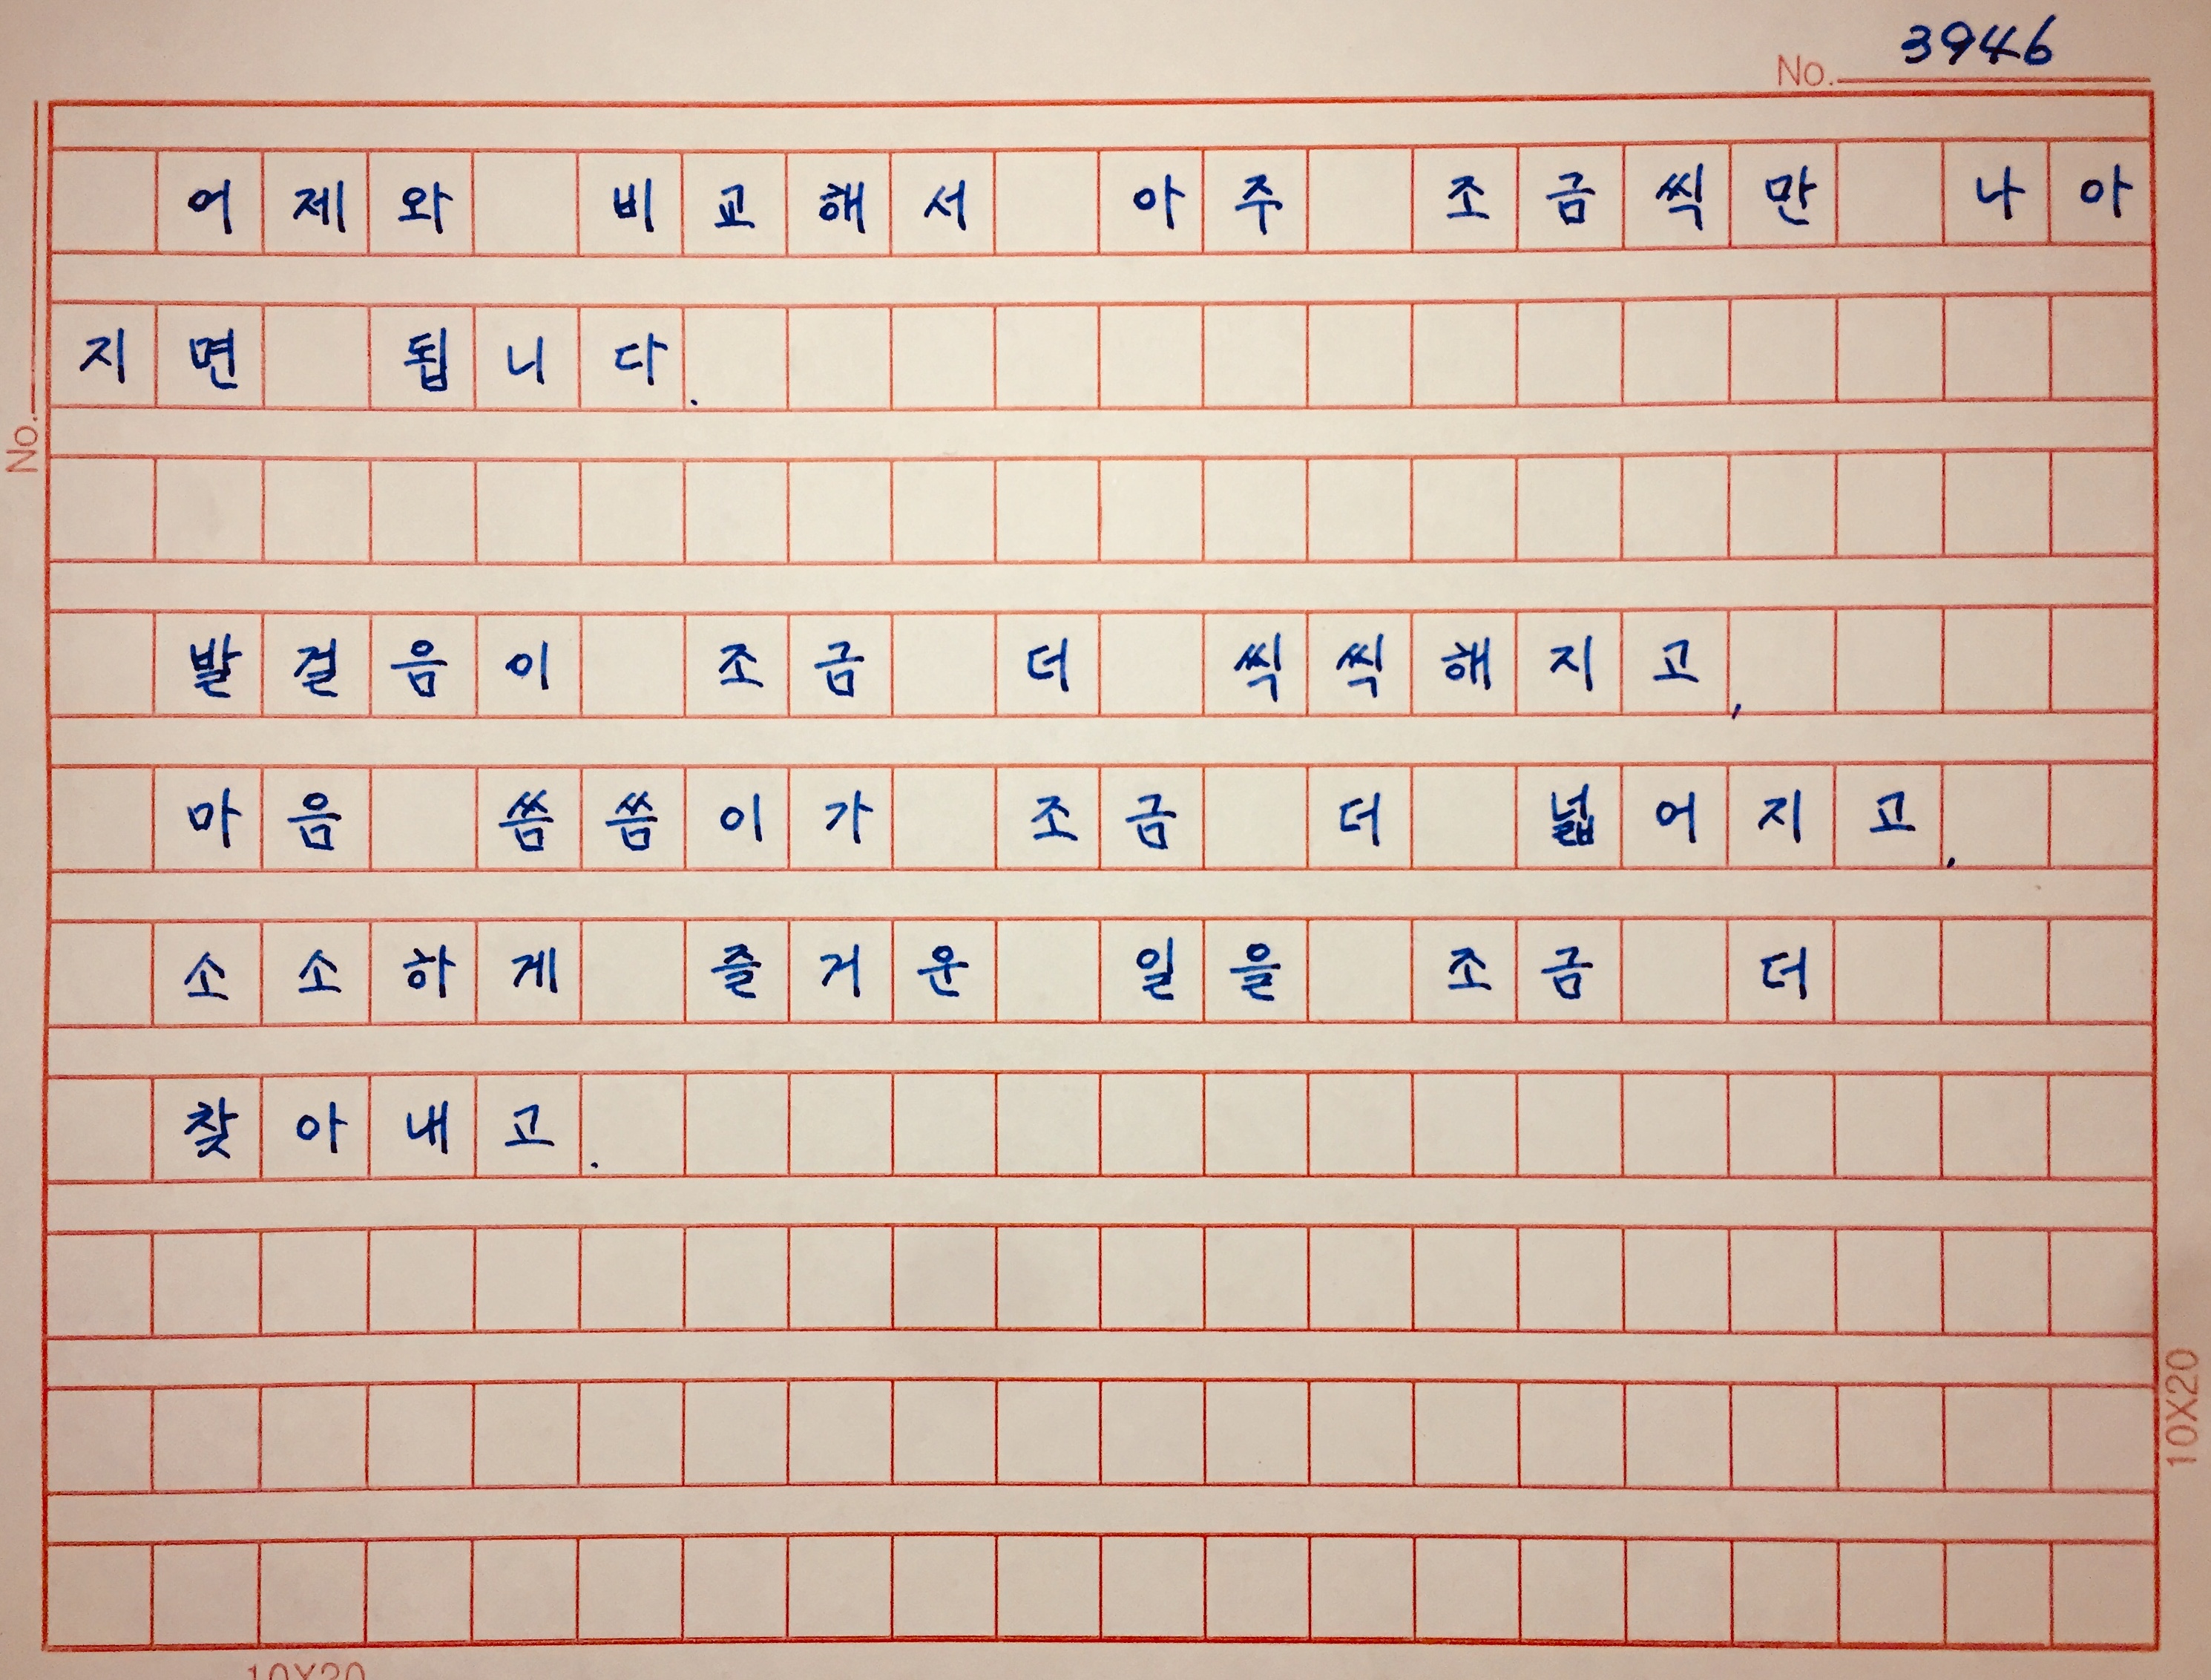 3946
No.
어제와 비교해서 아주 조금씩만 나아
지면 됩니다.
No.
발걸음이 조금 더 씩씩해지고,
마음 씀씀이가 조금 더 넓어지고,
소소하게 즐거운 일을 조금 더
찾아내고.
10X20
10X20